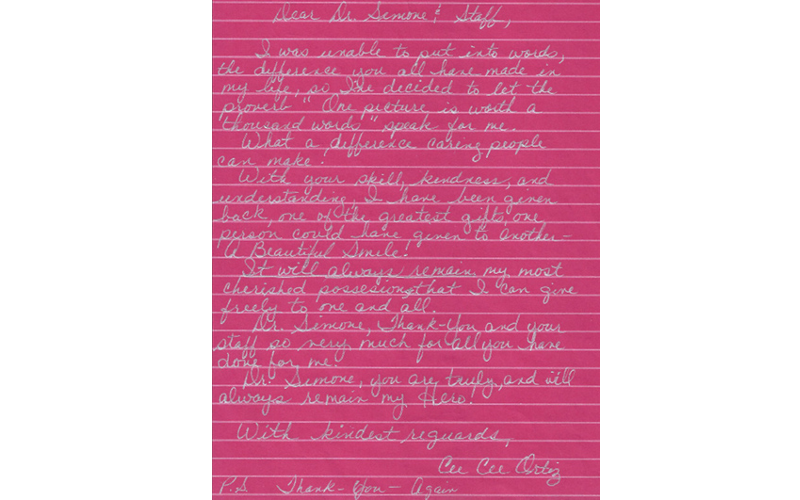 Dear Dr. Simone & Staff,
I was unable to put into words,
the difference you all have made in
my life, so I've decided to let the
proverb "One picture is worth a
thousand words" speak for me.
What a difference caring people
can make!
With your skill, kindness, and
understanding, I have been given
back, one of the greatest gifts one
person could have given to another-
A Beautiful Smile!
It will always remain my most
cherished possesion, that I can give
freely to one and all.
Dr. Simone, Thank-You and your
staff so very much for all you have
done for me.
Dr. Simone, you are truly, and will
always remain my Hero!
With kindest reguards,
Cee Cee Ortiz
P.S Thank-You-Again